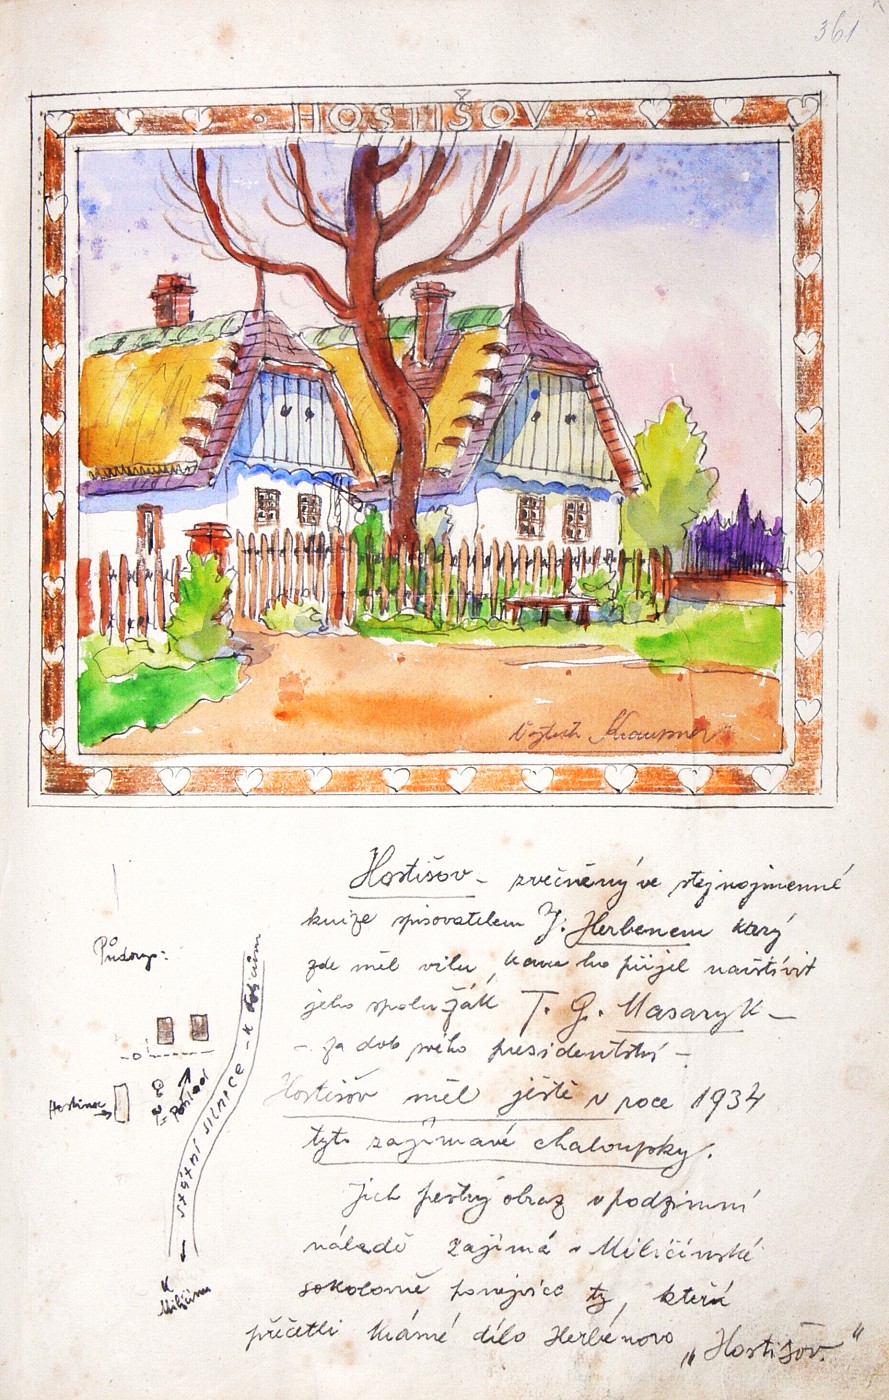 361
HOSTIŠOV
Vojtěch
Hostišov - zvěčněný ve stejnojmenné
knize spisovatelem J. Herbenem který
zde měl vilu, kam ho přijel navštívit
jeho spolužák T. G. Masaryk -
- za dob svého presidentství -
Hostišov měl ještě v roce 1934
tyto zajímavé chaloupky.
Jich pestrý obraz v podzimní
náladě zajímá v Miličínské
sokolovně ponejvíce ty, kteří
přečetli krásné dílo Herbenovo „Hostišov."
Půdorys:
Hostinec
Pohled
státní silnice - k
K
Miličínu